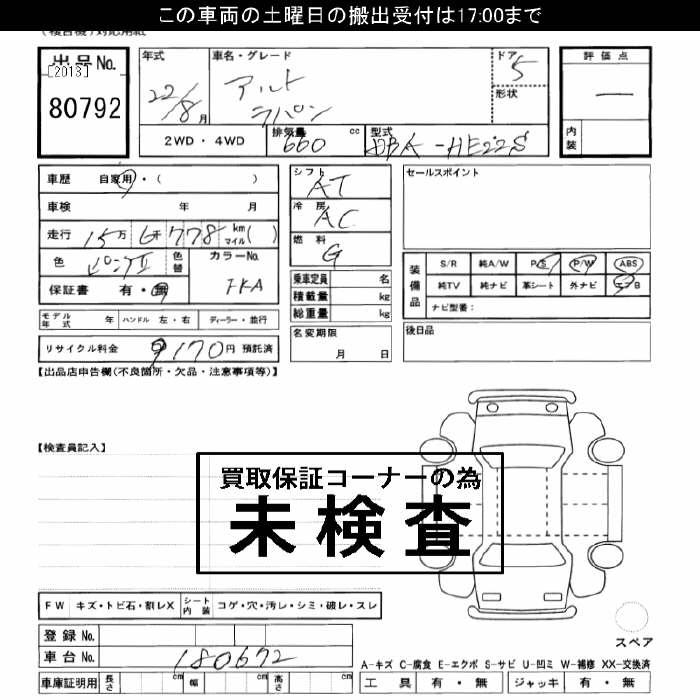 この車両の土曜日の搬出受付は17:00まで
(複合機)対応用紙
出品No.
[2013]
80792
年式
22/8月
車名・グレード
アルト
ラパン
ドア
5
形状
評価点
ー
内装
2WD・4WD
排気量
660 cc
型式
DBA-HE22S
車歴 自家用・( )
車検 年 月
走行 15万6千778 km マイル( )
色 ピンクII 色替
カラーNo.
保証書 有・無
シフト
AT
冷房
AC
燃料
G
乗車定員 名
積載量 kg
総重量 kg
セールスポイント
装備品
S/R 純A/W P/S P/W ABS
純TV 純ナビ 革シート 外ナビ エアB
ナビ型番:
モデル年式 年 ハンドル 左・右 ディーラー・並行
名変期限
月 日
後日品
リサイクル料金 9170円 預託済
【出品店申告欄(不良箇所・欠品・注意事項等)】
【検査員記入】
買取保証コーナーの為
未検査
FW キズ・トビ石・割レX シート内装 コゲ・穴・汚レ・シミ・破レ・スレ
登録No.
車台No. 180672
スペア
A-キズ C-腐食 E-エクボ S-サビ U-凹ミ W-補修 XX-交換済
車庫証明用 長さ cm 幅 cm 高さ cm
工具 有・無 ジャッキ 有・無